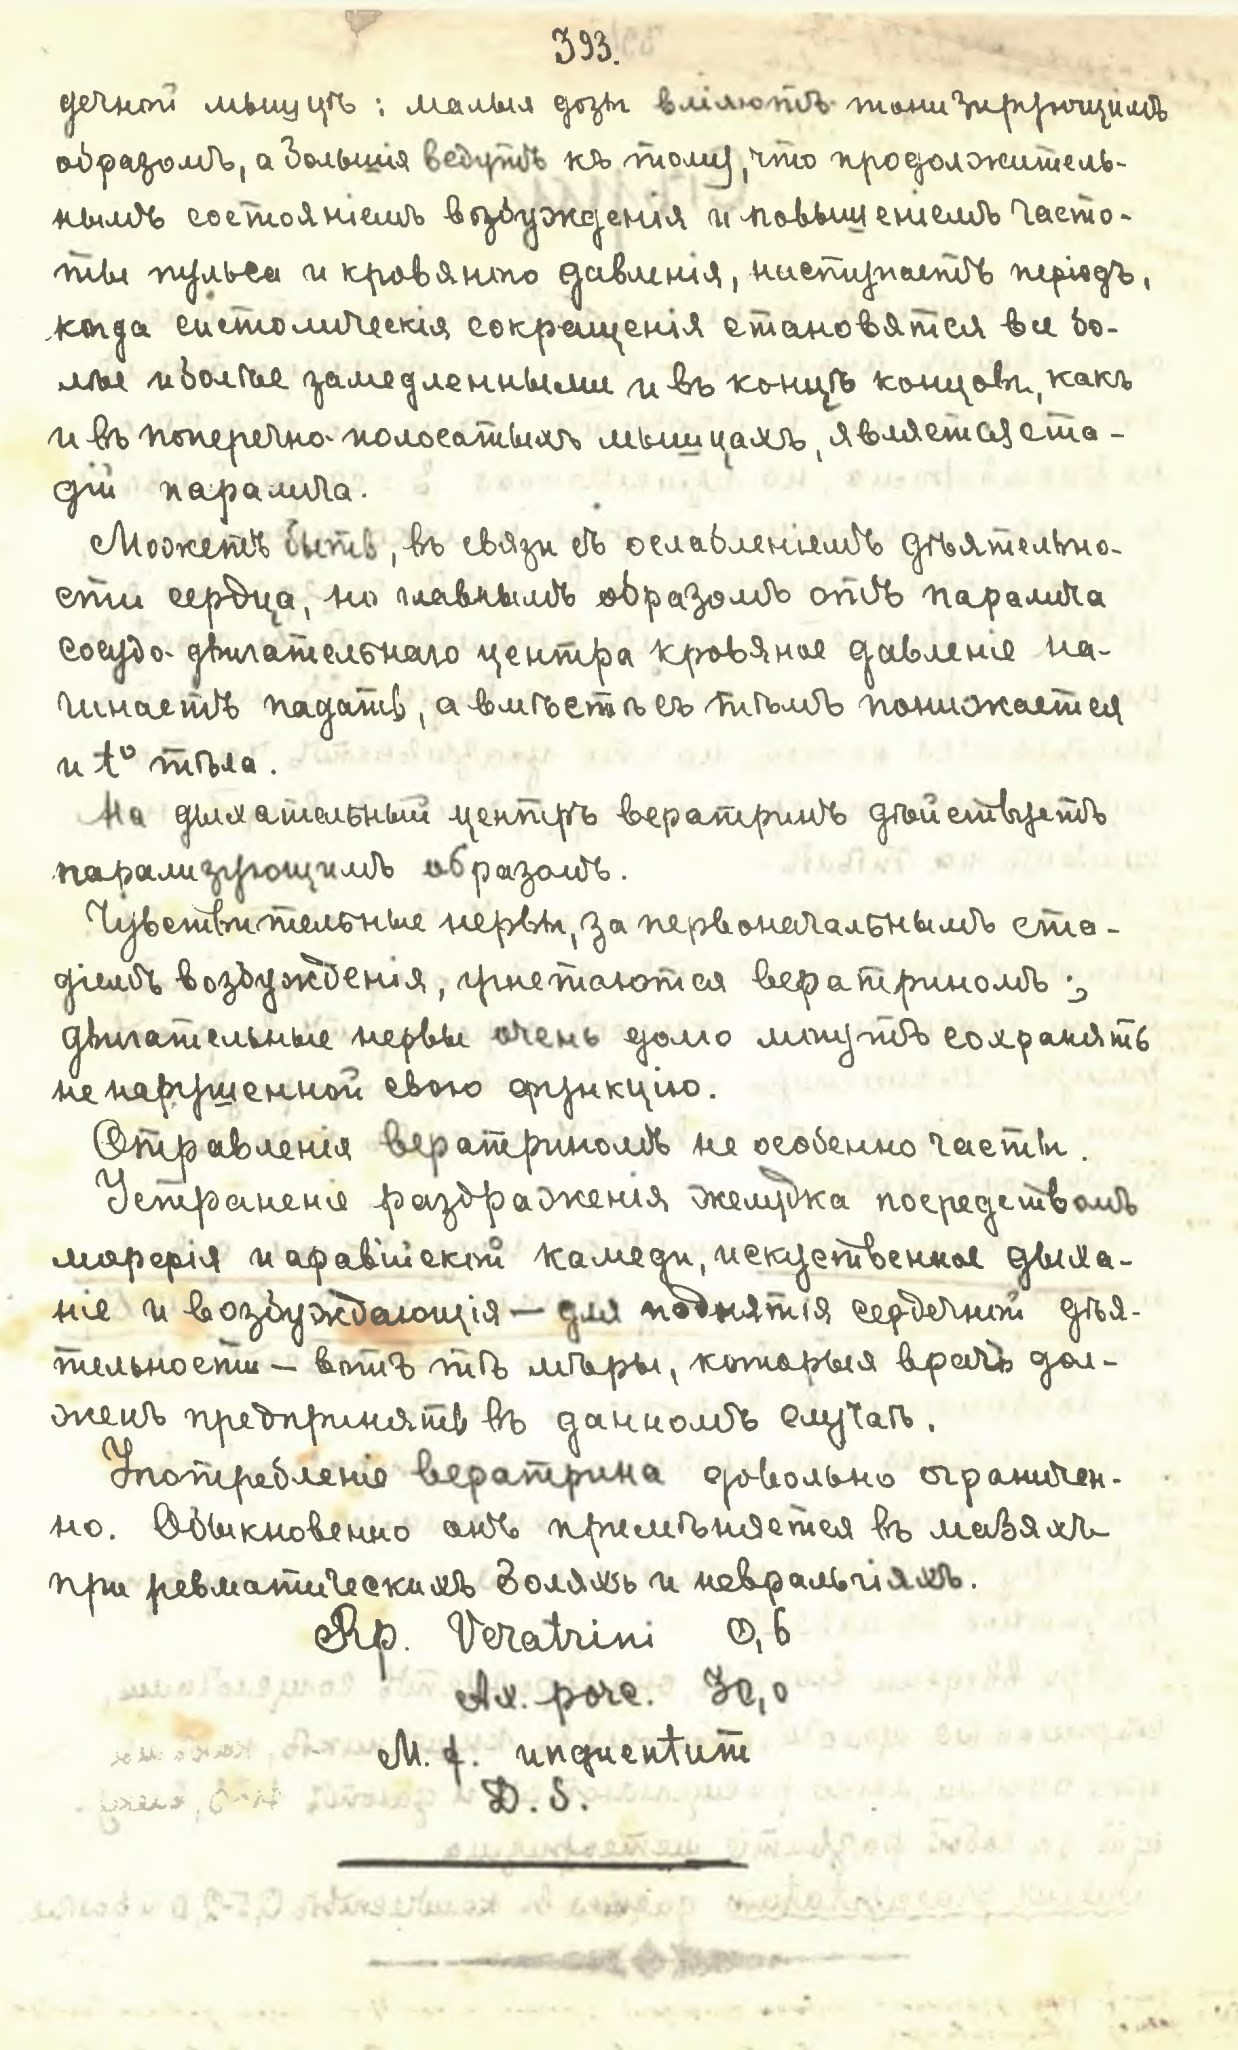 393.
дечной мышцѣ: малыя дозы вліяютъ тонизирующимъ
образомъ, а большія ведутъ къ тому, что продолжитель-
нымъ состояніемъ возбужденія и повышеніемъ часто-
ты пульса и кровяного давленія, наступаетъ періодъ,
когда систолическія сокращенія становятся все бо-
лѣе и болѣе замедленными и въ концѣ концовъ, какъ
и въ поперечно-полосатыхъ мышцахъ, является ста-
дій паралича.
Можетъ быть, въ связи съ ослабленіемъ дѣятельно-
сти сердца, но главнымъ образомъ отъ паралича
сосудо-двигательнаго центра кровяное давленіе на-
чинаетъ падать, а вмѣстѣ съ тѣмъ понижается
и t° тѣла.
На дыхательный центръ вератринъ дѣйствуетъ
парализующимъ образомъ.
Чувствительные нервы, за первоначальнымъ ста-
діемъ возбужденія, угнетаются вератриномъ;
двигательные нервы очень долго могутъ сохранять
ненарушенной свою функцію.
Отравленія вератриномъ не особенно часты.
Устраненіе раздраженія желудка посредствомъ
морфія и аравійской камеди, искуственное дыха-
ніе и возбуждающія — для поднятія сердечной дѣя-
тельности — вотъ тѣ мѣры, которыя врачъ дол-
женъ предпринять въ данномъ случаѣ.
Употребленіе вератрина довольно ограничен-
но. Обыкновенно онъ примѣняется въ мазяхъ
при ревматическихъ боляхъ и невральгіяхъ.
Rp. Veratrini 0,6
Ax. porc. 30,0
M. f. unguentum
D. S.